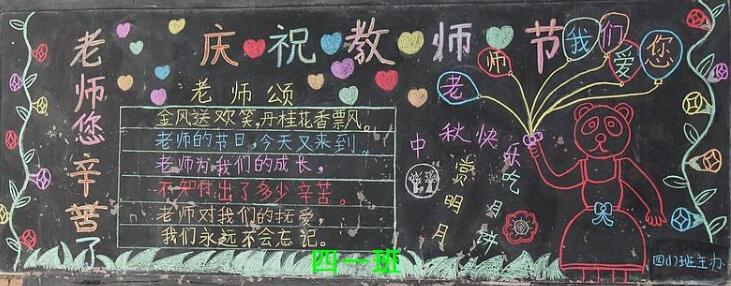 庆祝教师节
老师您辛苦了
老师颂
金风送欢笑,丹桂花香票风。
老师的节日,今天又来到
老师为我们的成长,
不知付出了多少辛苦。
老师对我们的抚爱,
我们永远不会忘记。
老师我们爱您
中秋快乐
赏明月
吃月饼
四(1)班主办
四一班